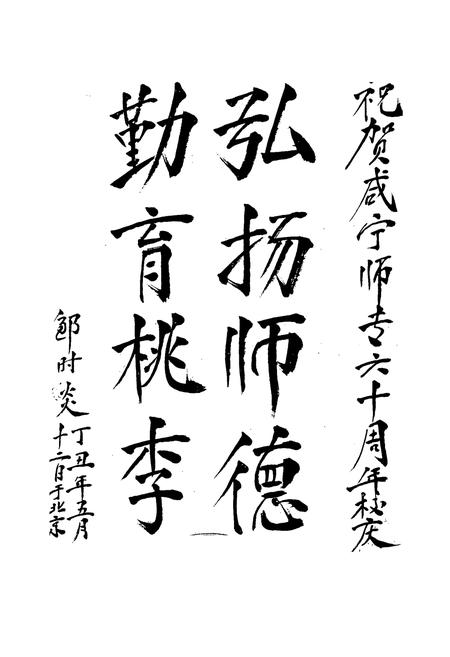 祝贺咸宁师专六十周年校庆
弘扬师德
勤育桃李
邹时炎
丁丑年五月
十二日于北京